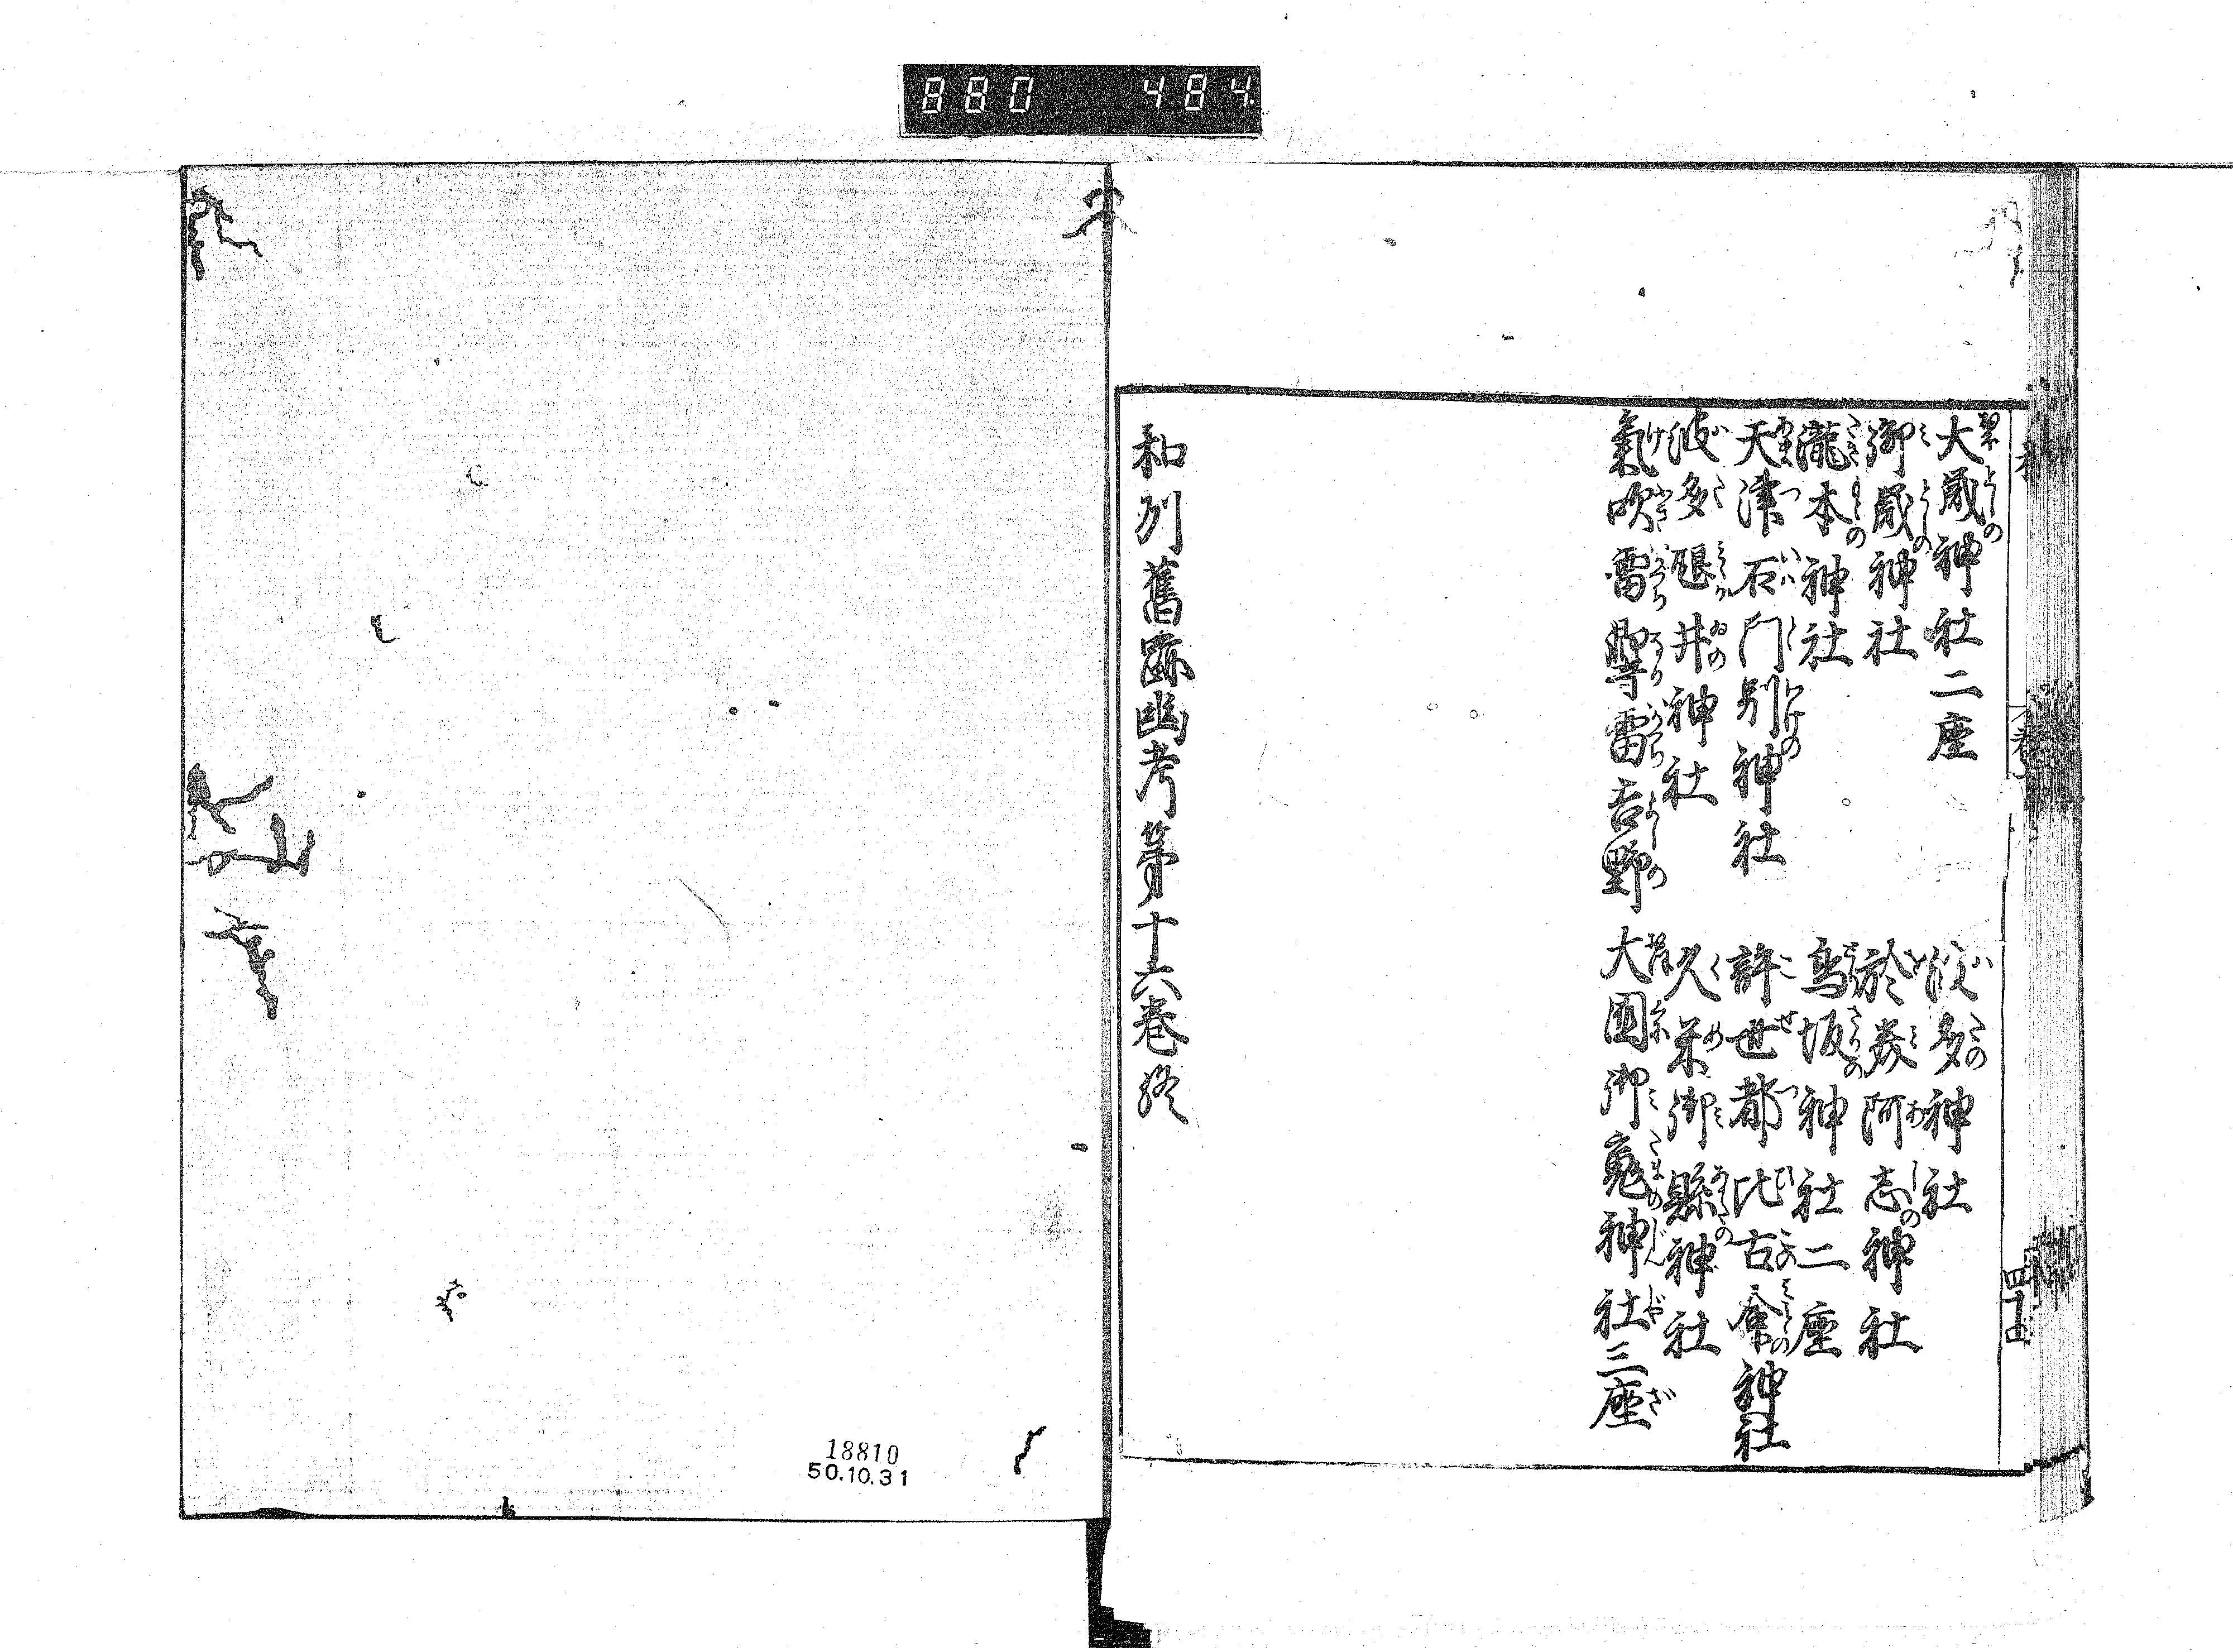 880 484
大歳神社二座 波多神社
御歳神社 於美阿志神社
瀧本神社 鳥坂神社二座
天津石門別神社 許世都比古命神社
波多𤭖井神社 久米御縣神社
氣吹雷響雷吉野大国御魂神社三座
和刕舊跡幽考第十六巻終
18810
50.10.31